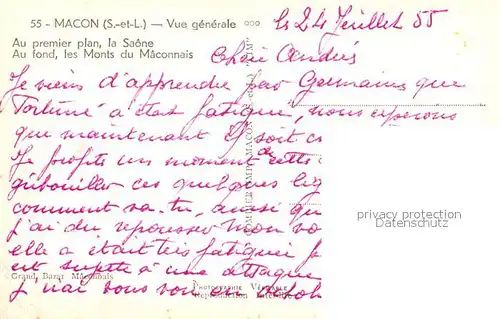 55 - MACON (S.-et-L.) — Vue générale
Au premier plan, la Saône
Au fond, les Monts du Mâconnais
le 24 Juillet 55
Cher Andrés
Je viens d'apprendre par Germaine que
Fortuné a était fatigué, nous espérons
que maintenant il soit
Je profite un moment de cette
gribouiller ces quelques lig
comment va-tu, ainsi qu
j'ai du repousser mon vo
elle a était très fatiguée
est sujette à une attaque
j'irai vous voir en
privacy protection
Datenschutz
Grand Bazar Mâconnais
PHOTOGRAPHIE VÉRITABLE
Reproduction Interdite